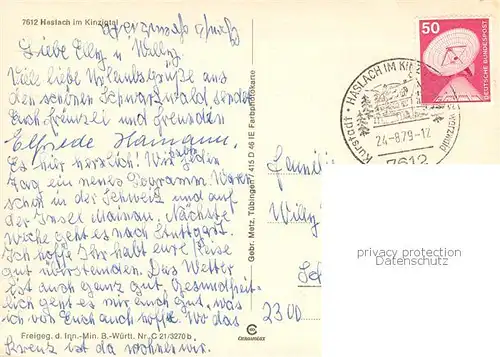 7612 Haslach im Kinzigtal
Liebe Elly u. Willy.
Viele liebe Urlaubsgrüße aus
den schönen Schwarzwald sendet
Euch Frenzel und Freunden
Elfriede Hamann.
Es ist hier herrlich! Wir haben jeden
Tag ein neues Programm. Waren
schon in der Schweiz und auf
der Insel Mainau. Nächste
Woche geht es nach Stuttgart.
Ich hoffe Ihr habt eure Reise
gut überstanden. Das Wetter
ist auch ganz gut, Gesundheit-
lich geht es mir auch gut, was
ich von Euch auch hoffe. Wo das
Kreuz ist da wohnen wir.
Freigeg. d. Inn.-Min. B.-Württ. Nr. C 21/3270 b
Gebr. Metz, Tübingen / 415 D 46 IE Farbpostkarte
CEKAVOLIX
50
DEUTSCHE BUNDESPOST
HASLACH IM KINZ
Kurstadt
24-8.79-12
7612
Familie
Willy
2300
privacy protection
Datenschutz